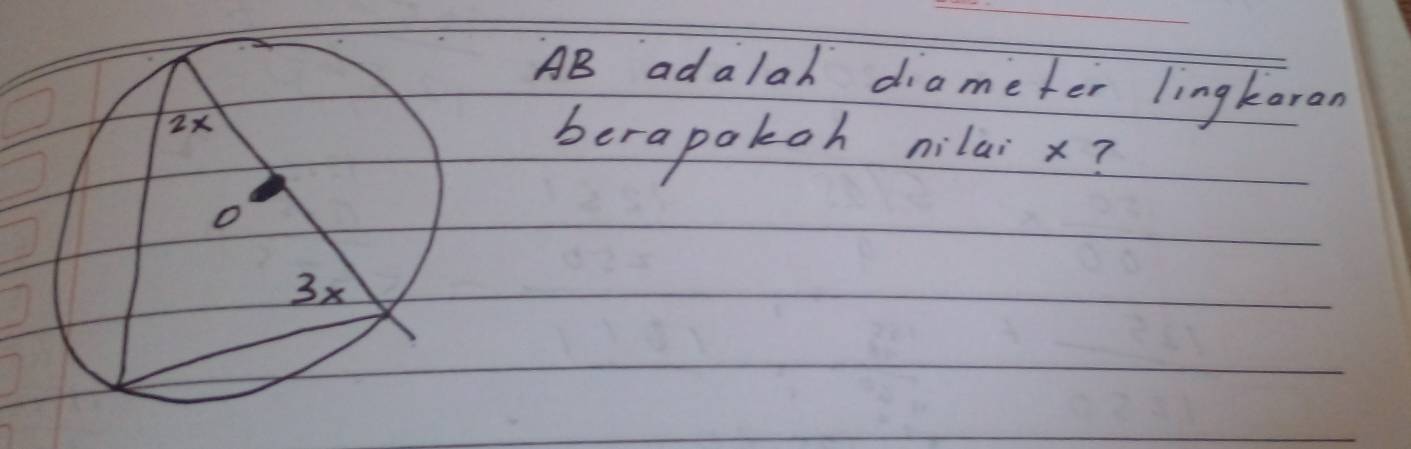 AB adalah diameter lingkaran
berapakah nilai x?
2x
O
3x